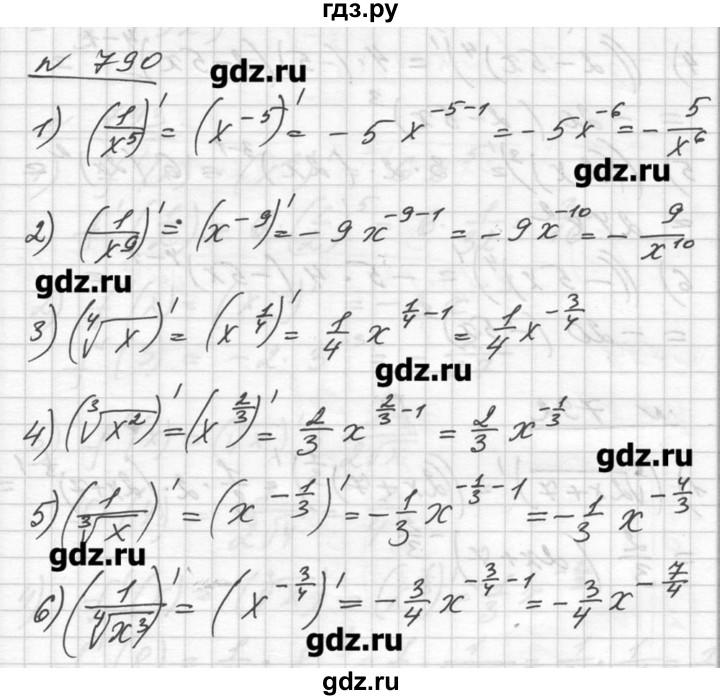 гдз.ру
№ 790
gdz.ru
1) (1/x⁵)' = (x⁻⁵)' = - 5x⁻⁵⁻¹ = - 5x⁻⁶ = - 5/x⁶
gdz.ru
2) (1/x⁹)' = (x⁻⁹)' = - 9x⁻⁹⁻¹ = - 9x⁻¹⁰ = - 9/x¹⁰
gdz.ru
3) (⁴√x)' = (x^(1/4))' = 1/4 x^(1/4 - 1) = 1/4 x^(-3/4)
gdz.ru
4) (³√x²)' = (x^(2/3))' = 2/3 x^(2/3 - 1) = 2/3 x^(-1/3)
gdz.ru
5) (1/³√x)' = (x^(-1/3))' = - 1/3 x^(-1/3 - 1) = - 1/3 x^(-4/3)
gdz.ru
6) (1/⁴√x³)' = (x^(-3/4))' = - 3/4 x^(-3/4 - 1) = - 3/4 x^(-7/4)
gdz.ru
gdz.ru